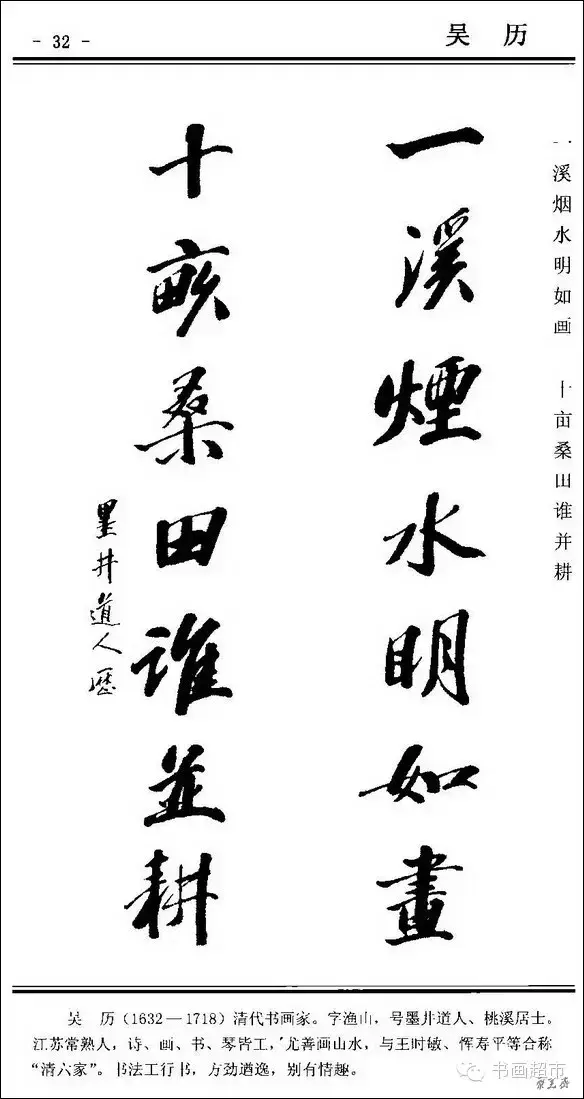 - 32 -
吴 历
一溪烟水明如画 十亩桑田谁并耕
一溪煙水明如畫
十畝桑田誰並耕
墨井道人歷
吴 历（1632—1718）清代书画家。字渔山，号墨井道人、桃溪居士。
江苏常熟人，诗、画、书、琴皆工，尤善画山水，与王时敏、恽寿平等合称
“清六家”。书法工行书，方劲遒逸，别有情趣。
书画超市